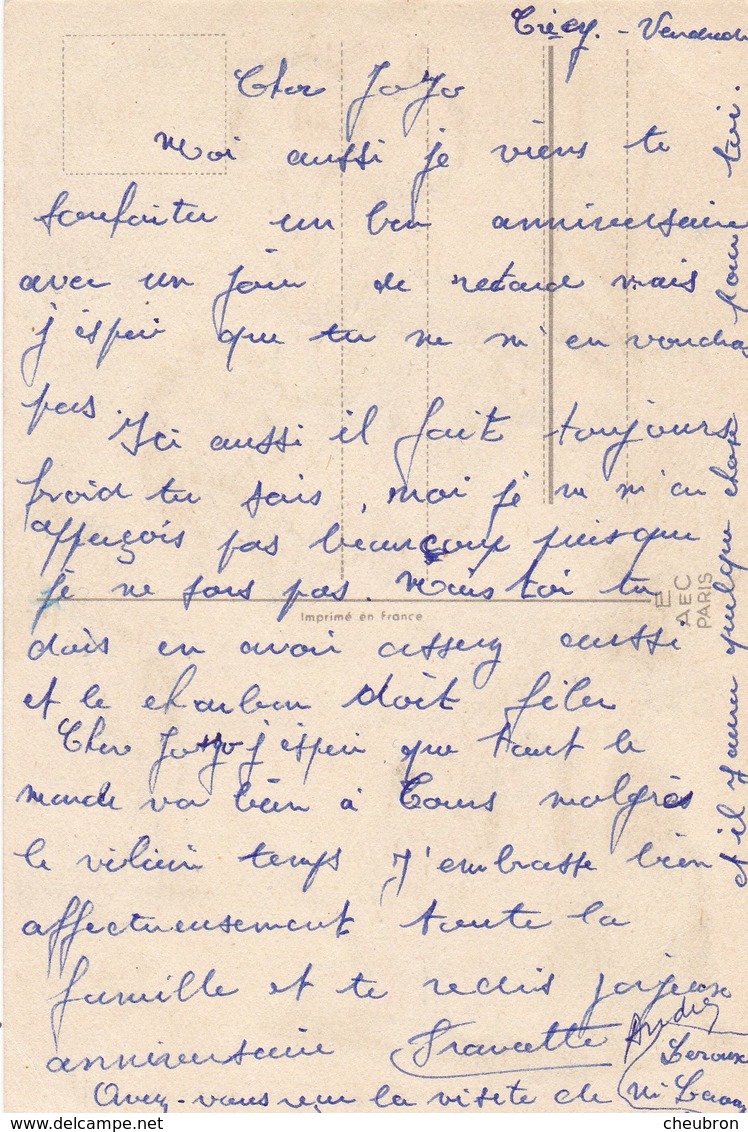 Crécy. - Vendredi
Cher JoJo
Moi aussi je viens te
souhaiter un bon anniversaire
avec un jour de retard mais
j'espère que tu ne m'en voudras
pas.
Ici aussi il fait toujours
froid tu sais, moi je ne m'en
apperçois pas beaucoup puisque
je ne sors pas. Mais toi tu
dois en avoir assez aussi
et le charbon doit filer
Cher JoJo j'espère que tout le
monde va bien à Tours malgrès
le vilain temps J'embrasse bien
affectueusement toute la
famille et te redis joyeux
anniversaire
André
Leroux
Avez-vous reçu la visite de Mr
et il y aura quelque chose pour toi.
Imprimé en France
AEC
PARIS
cheubron